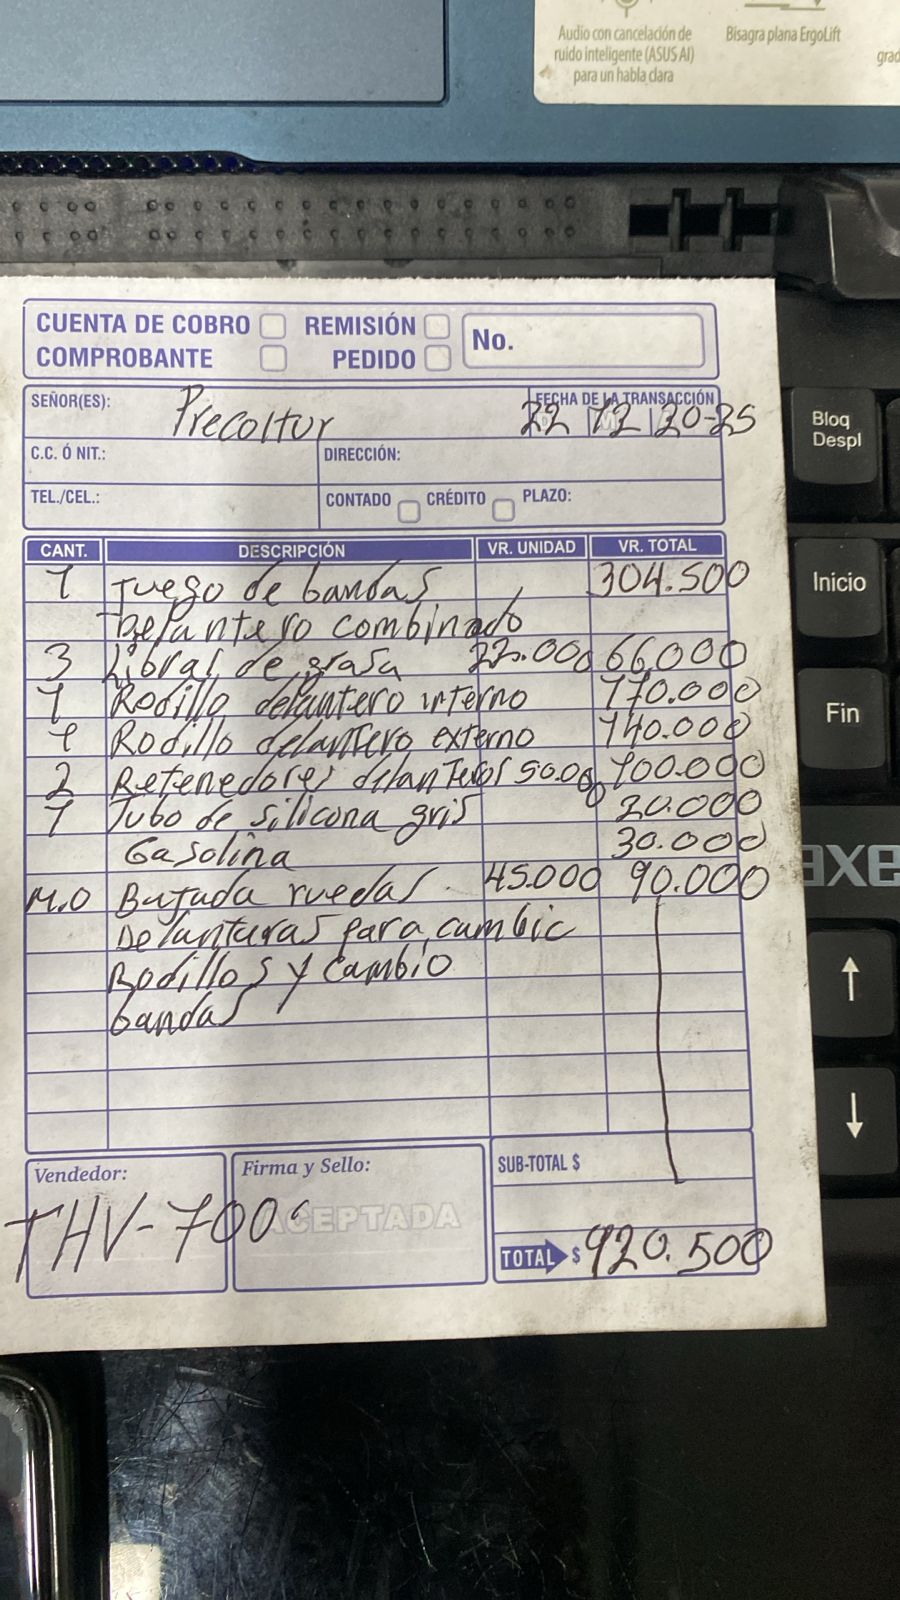 Audio con cancelación de
ruido inteligente (ASUS AI)
para un habla clara
Bisagra plana ErgoLift
grad
CUENTA DE COBRO REMISIÓN No.
COMPROBANTE PEDIDO
SEÑOR(ES): Precoltur FECHA DE LA TRANSACCIÓN
22 12 20-25
C.C. Ó NIT.: DIRECCIÓN:
TEL./CEL.: CONTADO CRÉDITO PLAZO:
CANT. DESCRIPCIÓN VR. UNIDAD VR. TOTAL
1 Juego de bandas 304.500
Delantero combinado
3 Libras de grasa 22.000 66.000
1 Rodillo delantero interno 170.000
1 Rodillo delantero externo 140.000
2 Retenedores delanteros 50.000 100.000
1 Tubo de silicona gris 20.000
Gasolina 30.000
M.O Bajada ruedas 45.000 90.000
Delanturas para cambio
Rodillos y cambio
bandas
Vendedor: Firma y Sello: SUB-TOTAL $
THV-100 ACEPTADA
TOTAL $ 920.500
Bloq
Despl
Inicio
Fin
axe
↑
↓